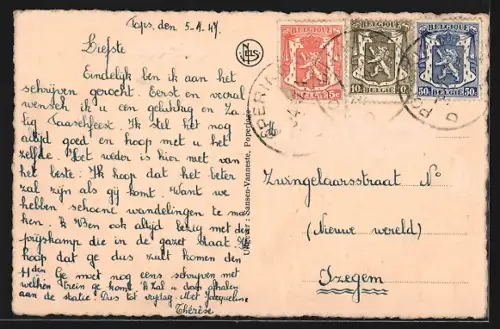 Pops, den 5-4-47.
Liefste
Eindelijk ben ik aan het
schrijven gerocht. Eerst en vooral
wensch ik u een gelukkig en Za-
lig Paaschfeest. Ik stel het nog
altijd goed en hoop met u het
zelfde. Het weder is hier niet van
het beste: Ik hoop dat het beter
zal zijn als gij komt. Want we
hebben schoone wandelingen te ma-
ken. Ik Ben ook altijd bezig met den
prijskamp die in de gazet staat. Ik
hoop dat ge dus zult komen den
Ge moet nog eens schrijven met
welken trein ge komt. Ik Zal u dan afhalen
aan de statie. Dus tot vrijdag. Met Jacqueline
Thérèse
Uitgever: Sansen-Vanneste, Poperinge
BELGIQUE
5c
BELGIE
BELGIQUE
10 c
BELGIE
BELGIQUE
50 50
BELGIE
POPERIN
Zwingelaarsstraat No
(Nieuwe wereld)
Izegem